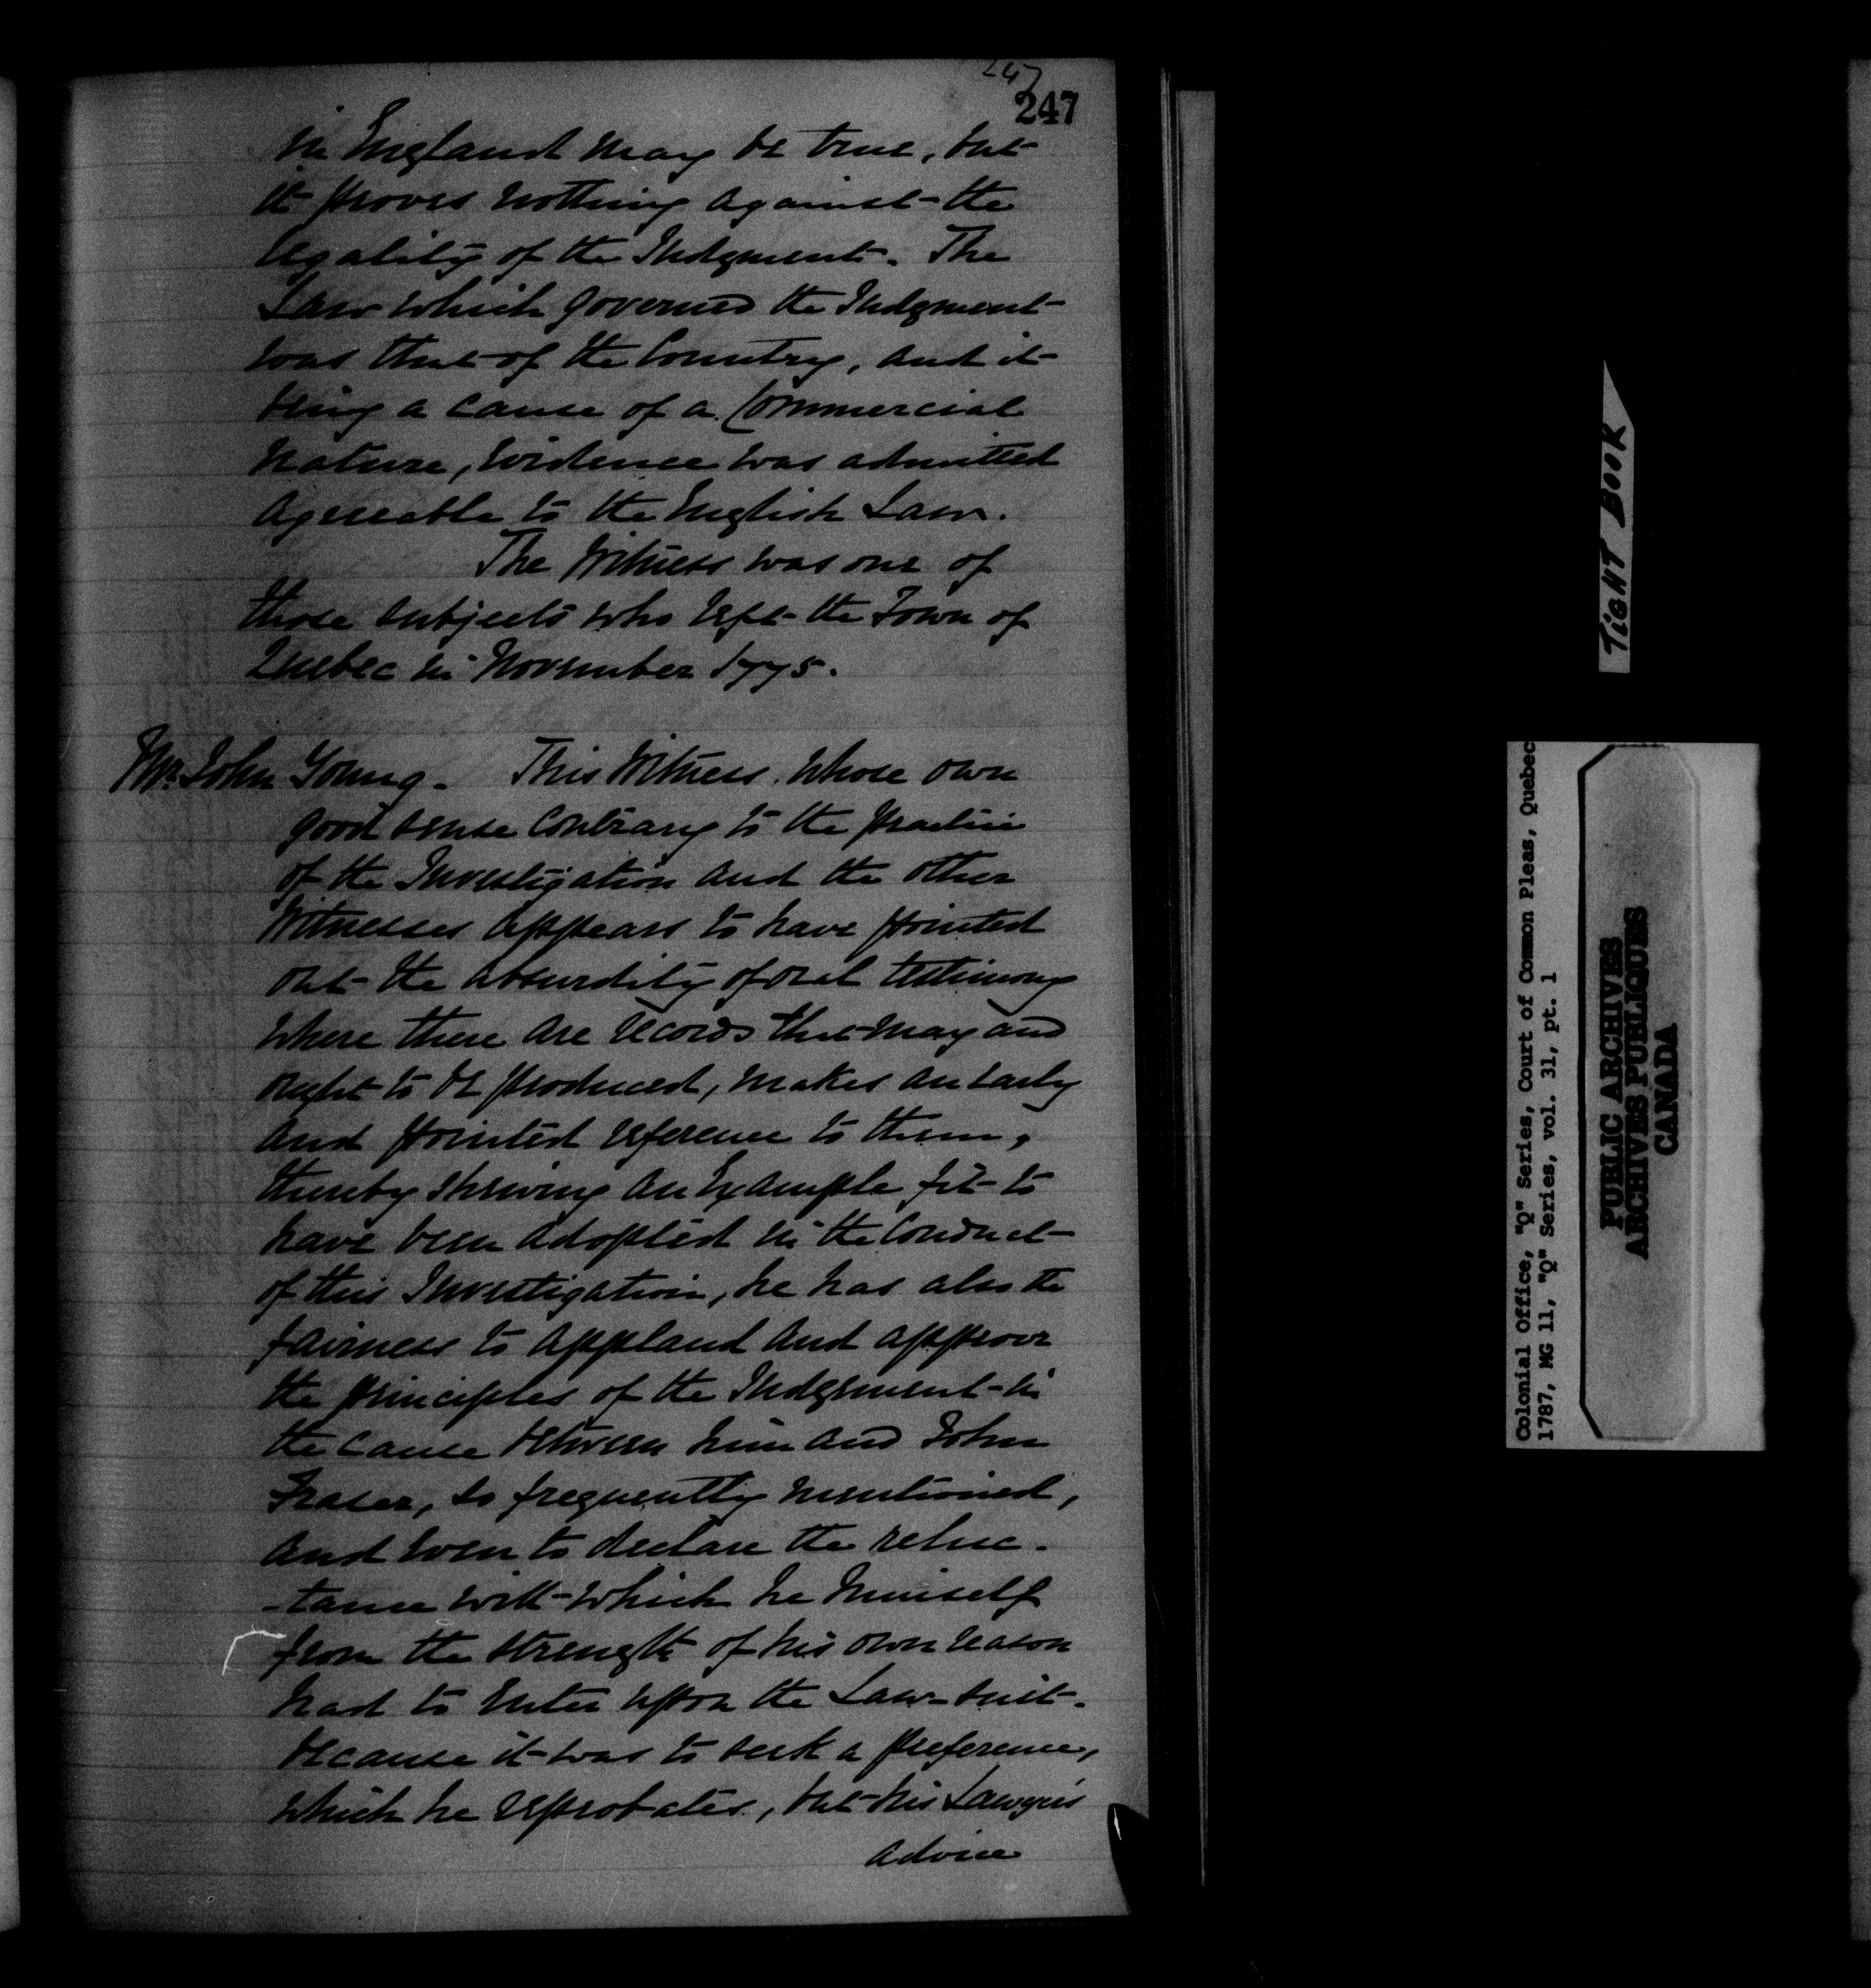 247
247
in England may be true, but
it proves nothing against the
legality of the Judgment. The
Law which governed the Judgment
was that of the Country, and it
being a cause of a Commercial
nature, Evidence was admitted
agreeable to the English Law.
The Witness was one of
those subjects who left the Town of
Quebec in November 1775.
Mr. John Young. This Witness, whose own
good sense contrary to the practice
of the Investigation and the other
Witnesses appears to have pointed
out the absurdity of oral testimony
where there are records that may and
ought to be produced, makes an early
and pointed reference to them,
thereby shewing an Example fit to
have been adopted in the Conduct
of this Investigation, he has also the
fairness to applaud and approve
the principles of the Judgement in
the cause between him and John
Fraser, so frequently mentioned,
and even to declare the reluc-
-tance with which he himself
from the strength of his own reason
had to enter upon the Law-suit.
because it was to seek a preference,
which he reprobates, but his Lawyers
advice
TIGHT BOOK
Colonial Office, "Q" Series, Court of Common Pleas, Quebec
1787, MG 11, "Q" Series, vol. 31, pt. 1
PUBLIC ARCHIVES
ARCHIVES PUBLIQUES
CANADA